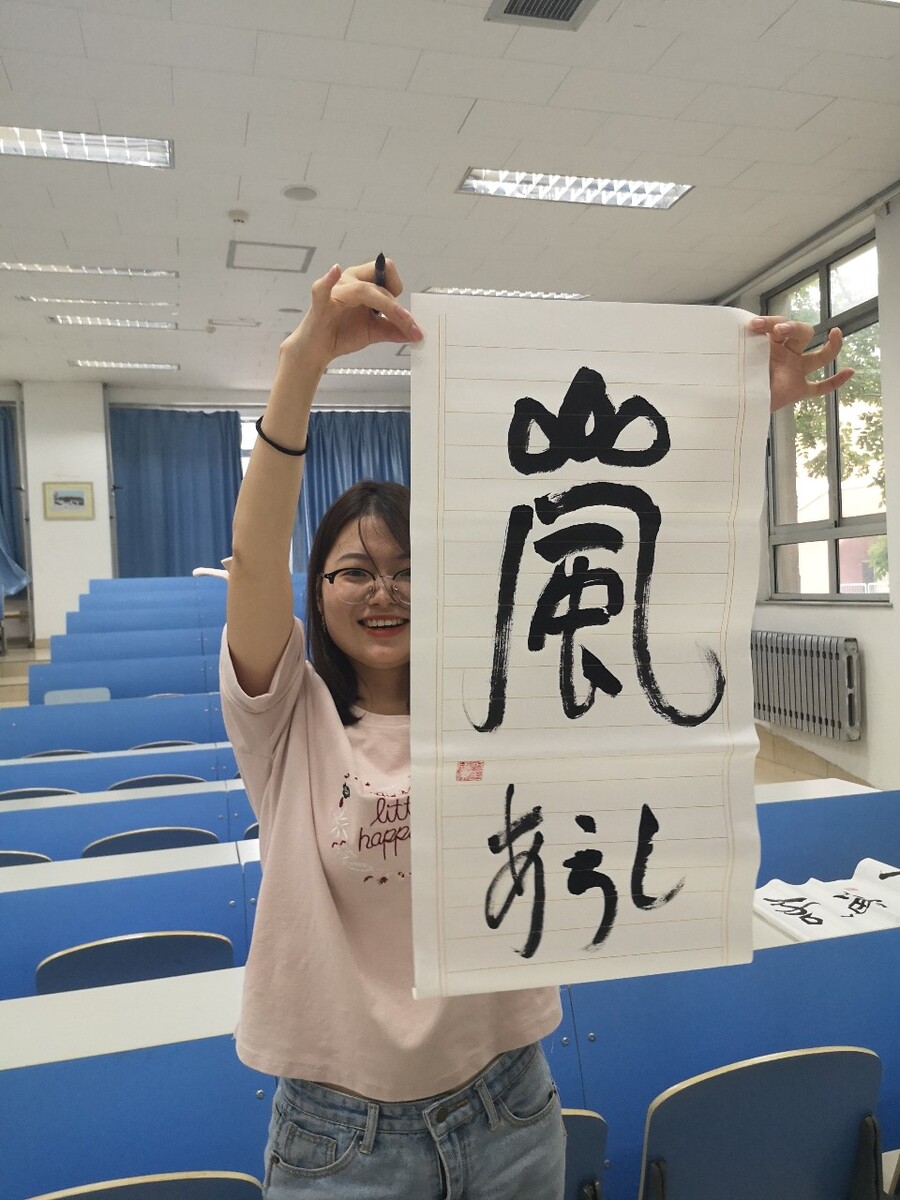 嵐
あらし
litt
happ